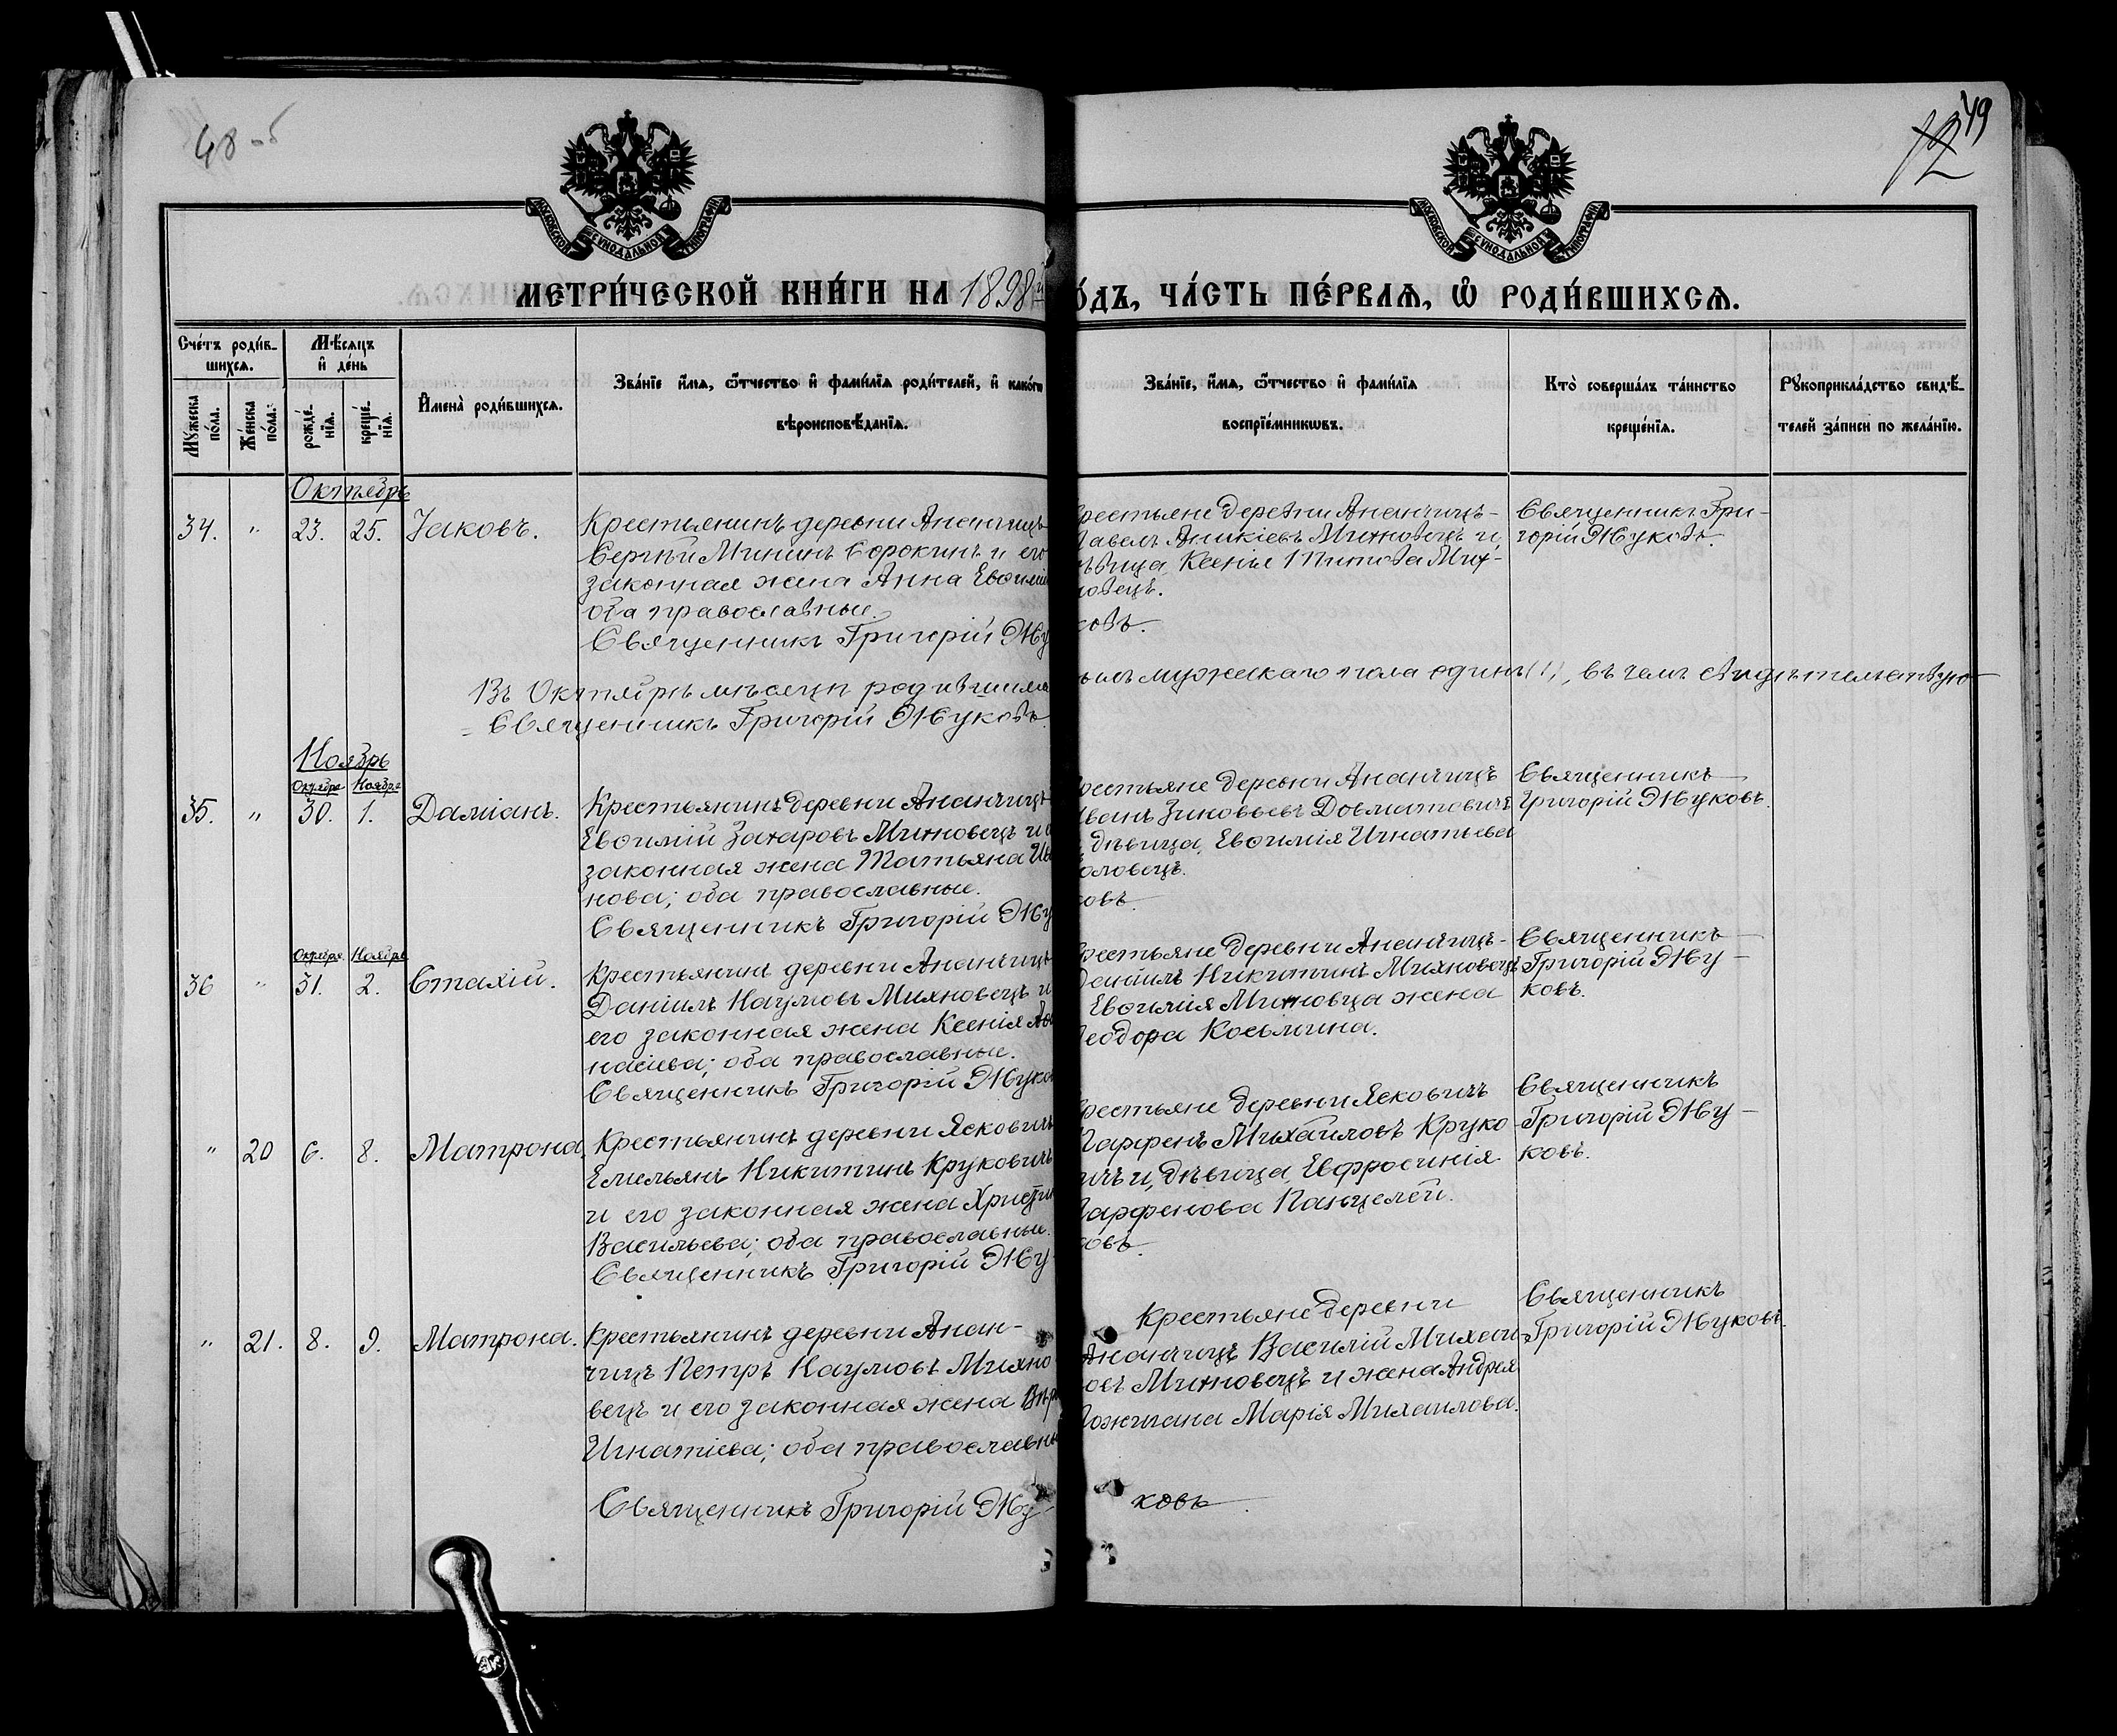 48-об
49
12
МОСКОВСКОЙ СѴНОДАЛЬНОЙ ТИПОГРАФІИ
МОСКОВСКОЙ СѴНОДАЛЬНОЙ ТИПОГРАФІИ
МЕТРИ́ЧЕСКОЙ КНИ́ГИ НА 1898й
О́ДЪ, ЧА́СТЬ ПЕ́РВАѦ, Ѿ РОДИ́ВШИХСѦ.
Сче́тъ роди́в-
шихсѧ.
Мꙋ́жеска по́ла.
Же́нска по́ла.
Мѣ́сѧцъ
и҆ де́нь
рожде́-
нїѧ.
креще́-
нїѧ.
И҆мена̀ роди́вшихсѧ.
Зва́нїе и҆́мѧ, ѻ҆́тчество и҆ фами́лїѧ роди́телей, и҆ како́гѡ
вѣроисповѣ́данїѧ.
Зва́нїе, и҆́мѧ, ѻ҆́тчество и҆ фами́лїѧ
воспрїе́мникѡвъ.
Кто̀ соверша́лъ та́инство
креще́нїѧ.
Рꙋкоприкла́дство свидѣ́-
телей за́писи по жела́нїю.
Октябрь
34. " 23. 25. Іаковъ.
Крестьянинъ деревни Ананчицъ
Сергѣй Мининъ Сорокинъ и его
законная жена Анна Евѳимі
оба православные.
Священникъ Григорій Жу
рестьяне деревни Ананчицъ-
Павелъ Аникіевъ Михновецъ и,
дѣвица, Ксенія Титова Мих-
новецъ.
ковъ.
Священникъ Гри-
горій Жуковъ.
Въ Октябрѣ мѣсяцѣ родившихся
былъ мужескаго пола одинъ (1), въ чемъ свидѣтельствую
Священникъ Григорій Жуковъ.
Ноябрь
Октября Ноября
35. " 30. 1. Даміанъ.
Крестьянинъ деревни Ананчицъ
Евѳимій Захаровъ Михновецъ и
законная жена Татьяна Ива
нова; оба православные.
Священникъ Григорій Жу
рестьяне деревни Ананчицъ
Иванъ Зиновьевъ Довматовичъ
дѣвица, Евѳимія Игнатьева
оловецъ.
ковъ.
Священникъ
Григорій Жуковъ.
Октября Ноября
36 " 31. 2. Стахій.
Крестьянинъ деревни Ананчицъ
Даніилъ Наумовъ Михновецъ и
его законная жена Ксенія Аѳа
насіева; оба православные.
Священникъ Григорій Жуко
рестьяне деревни Ананчицъ-
Даніилъ Никитинъ Михновецъ
Евѳимія Михновца жена
Ѳеодора Косьмина.
Священникъ
Григорій Жу-
ковъ.
" 20 6. 8. Матрона.
Крестьянинъ деревни Ясковичъ
Емельянъ Никитинъ Круковичъ
и его законная жена Христин
Васильева; оба православные.
Священникъ Григорій Жу-
рестьяне деревни Ясковичъ
Парфенъ Михайловъ Круко-
ичъ и, дѣвица, Евфросинія
Парфенова Панцелей.
ковъ.
Священникъ
Григорій Жу-
ковъ.
" 21. 8. 9. Матрона.
Крестьянинъ деревни Анан-
чицъ Петръ Наумовъ Михно
вецъ и его законная жена Вѣр
Игнатіева; оба православны
Священникъ Григорій Жу-
Крестьяне деревни
Ананчицъ Василій Михаи-
овъ Михновецъ и жена Андрея
Марія Михаилова.
ковъ.
Священникъ
Григорій Жуковъ.